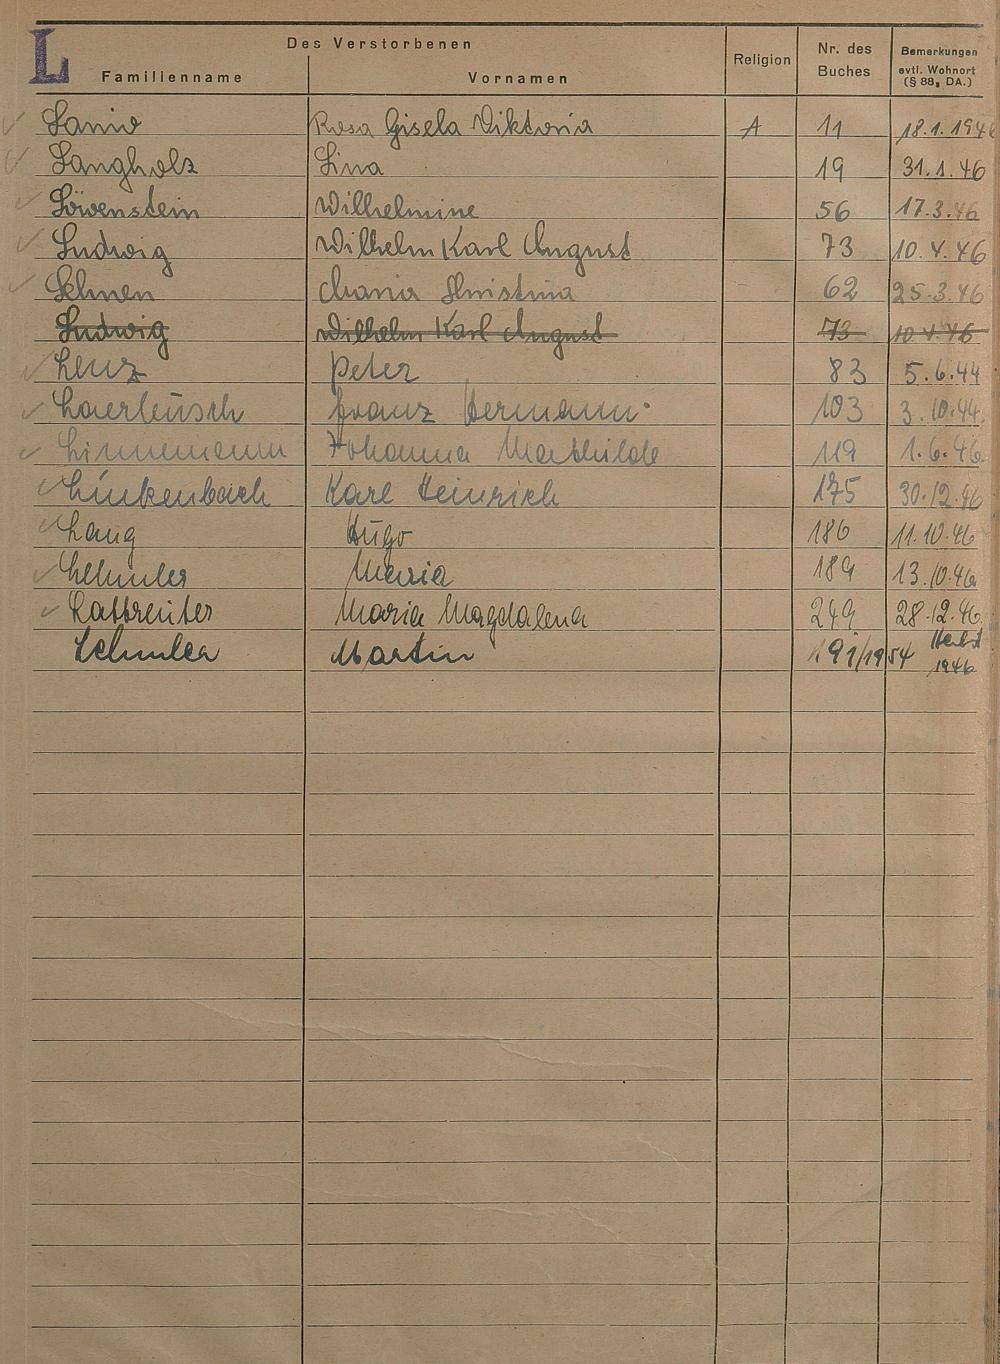 L
Des Verstorbenen
Familienname Vornamen Religion Nr. des Buches Bemerkungen evtl. Wohnort (§ 88, DA.)
Lanio Rosa Gisela Viktoria A 11 18.1.1946
Langholz Lina 19 31.1.46
Löwenstein Wilhelmine 56 17.3.46
Ludwig Wilhelm Karl August 73 10.4.46
Lehnen Maria Christina 62 25.3.46
Ludwig Wilhelm Karl August 73 10.4.46
Lenz Peter 83 5.6.44
Franz Hermann 103 3.10.44
Linnemann Johanna Mathilde 119 1.6.46
Linkenbach Karl Heinrich 175 30.12.46
Lang Hugo 186 11.10.46
Lehmler Maria 189 13.10.46
Lattreuter Maria Magdalena 249 28.12.46
Lehmler Martin 191/1954 Herbst 1946